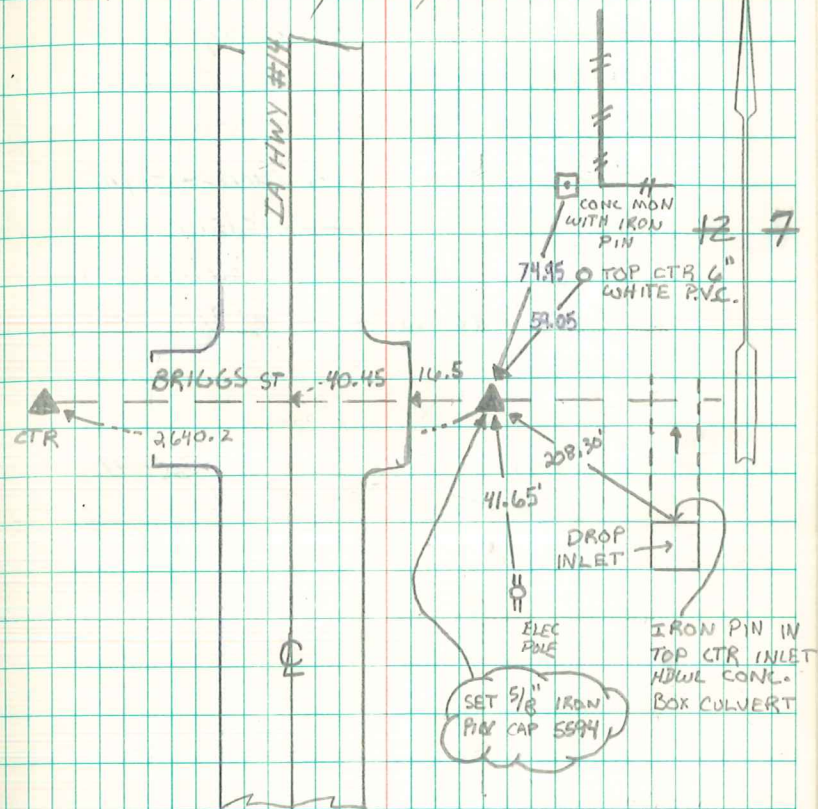 IA HWY #14
CONC MON
WITH IRON
PIN
12 7
74.95
TOP CTR 6"
WHITE P.V.C.
59.05
BRIGGS ST
40.45
16.5
CTR
2,640.2
208.30'
41.65'
DROP
INLET
ELEC
POLE
IRON PIN IN
TOP CTR INLET
HDWL CONC.
BOX CULVERT
℄
SET 5/8" IRON
PIN CAP 5594